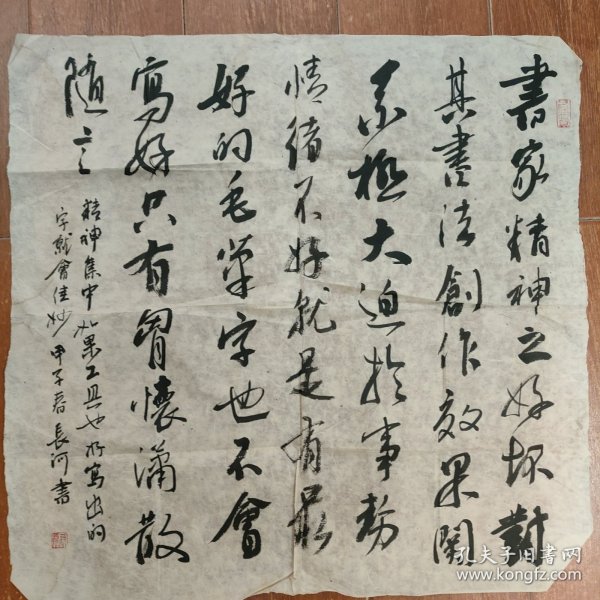 書家精神之好坏對
其書法創作效果關
系極大迫於事務
情绪不好就是有最
好的毛筆字也不會
寫好只有胸懷瀟散
随言
精神集中如果工具也好寫出的
字就會佳妙甲子春長河書
孔夫子旧書网
www.kongfz.com